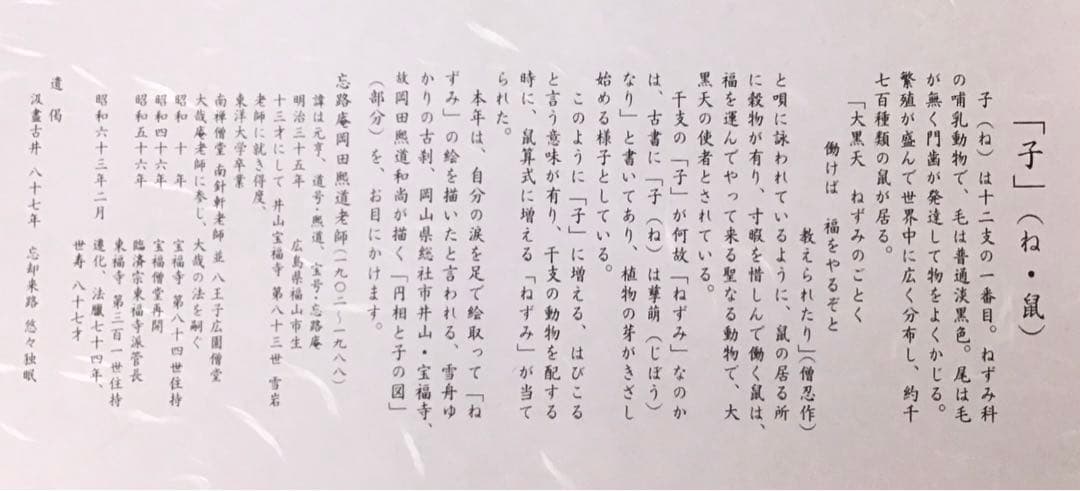 「子」（ね・鼠）
子（ね）は十二支の一番目。ねずみ科
の哺乳動物で、毛は普通淡黒色。尾は毛
が無く門歯が発達して物をよくかじる。
繁殖が盛んで世界中に広く分布し、約千
七百種類の鼠が居る。
「大黒天　ねずみのごとく
働けば　福をやるぞと
教えられたり」（僧忍作）
と唄に詠われているように、鼠の居る所
に穀物が有り、寸暇を惜しんで働く鼠は、
福を運んでやって来る聖なる動物で、大
黒天の使者とされている。
干支の「子」が何故「ねずみ」なのか
は、古書に「子（ね）は孳萌（じぼう）
なり」と書いてあり、植物の芽がきざし
始める様子としている。
このように「子」に増える、はびこる
と言う意味が有り、干支の動物を配する
時に、鼠算式に増える「ねずみ」が当て
られた。
本年は、自分の涙を足で絵取って「ね
ずみ」の絵を描いたと言われる、雪舟ゆ
かりの古刹、岡山県総社市井山・宝福寺、
故岡田熙道和尚が描く「円相と子の図」
（部分）を、お目にかけます。
忘路庵岡田熙道老師（一九〇二〜一九八八）
諱は元亨、道号・熙道、室号・忘路庵
明治三十五年　広島県福山市生
十三才にして　井山宝福寺　第八十三世　雪岩
老師に就き得度、
東洋大学卒業
南禅僧堂　南針軒老師　並　八王子広園僧堂
大哉庵老師に参し、大哉の法を嗣ぐ
昭和　十　年　宝福寺　第八十四世住持
昭和四十六年　宝福僧堂再開
昭和五十六年　臨済宗東福寺派管長
東福寺　第三百一世住持
昭和六十三年二月　遷化、法臘七十四年、
世寿　八十七才
遺　偈
汲盡古井　八十七年　忘却来路　悠々独眠